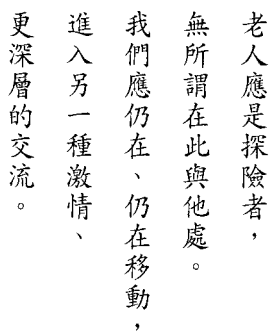 老人應是探險者，
無所謂在此與他處。
我們應仍在、仍在移動，
進入另一種激情、
更深層的交流。